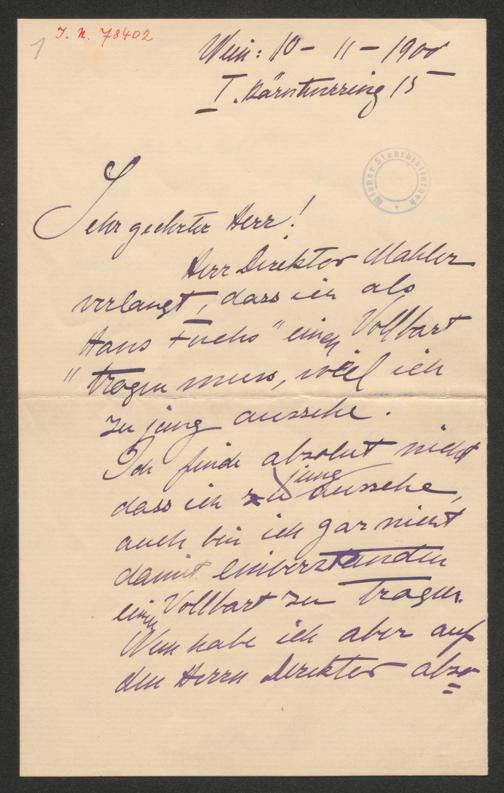 1
I. N. 78402
Wien: 10 - 11 - 1900
I. Kärntnerring 15
Wiener Stadtbibliothek
Sehr geehrter Herr!
Herr Direktor Mahler
verlangt, dass ich als
Hans Fuchs" einen Vollbart
"tragen muss, weil ich
zu jung aussehe.
Ich finde absolut nicht
dass ich zu jung aussehe,
auch bin ich gar nicht
damit einverstanden
einen Vollbart zu tragen.
Nun habe ich aber auf
den Herrn Direktor abso